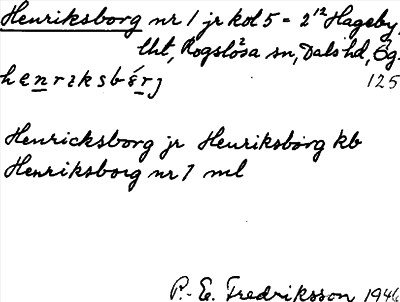 Henriksborg nr 1 jr kol 5 = 2¹² Hageby,
lht, Rogslösa sn, Dals hd, Ög.
henriksbɛ́rj 125
Henricksborg jr Henriksborg kb
Henriksborg nr 1 ml
P.-E. Fredriksson 1946